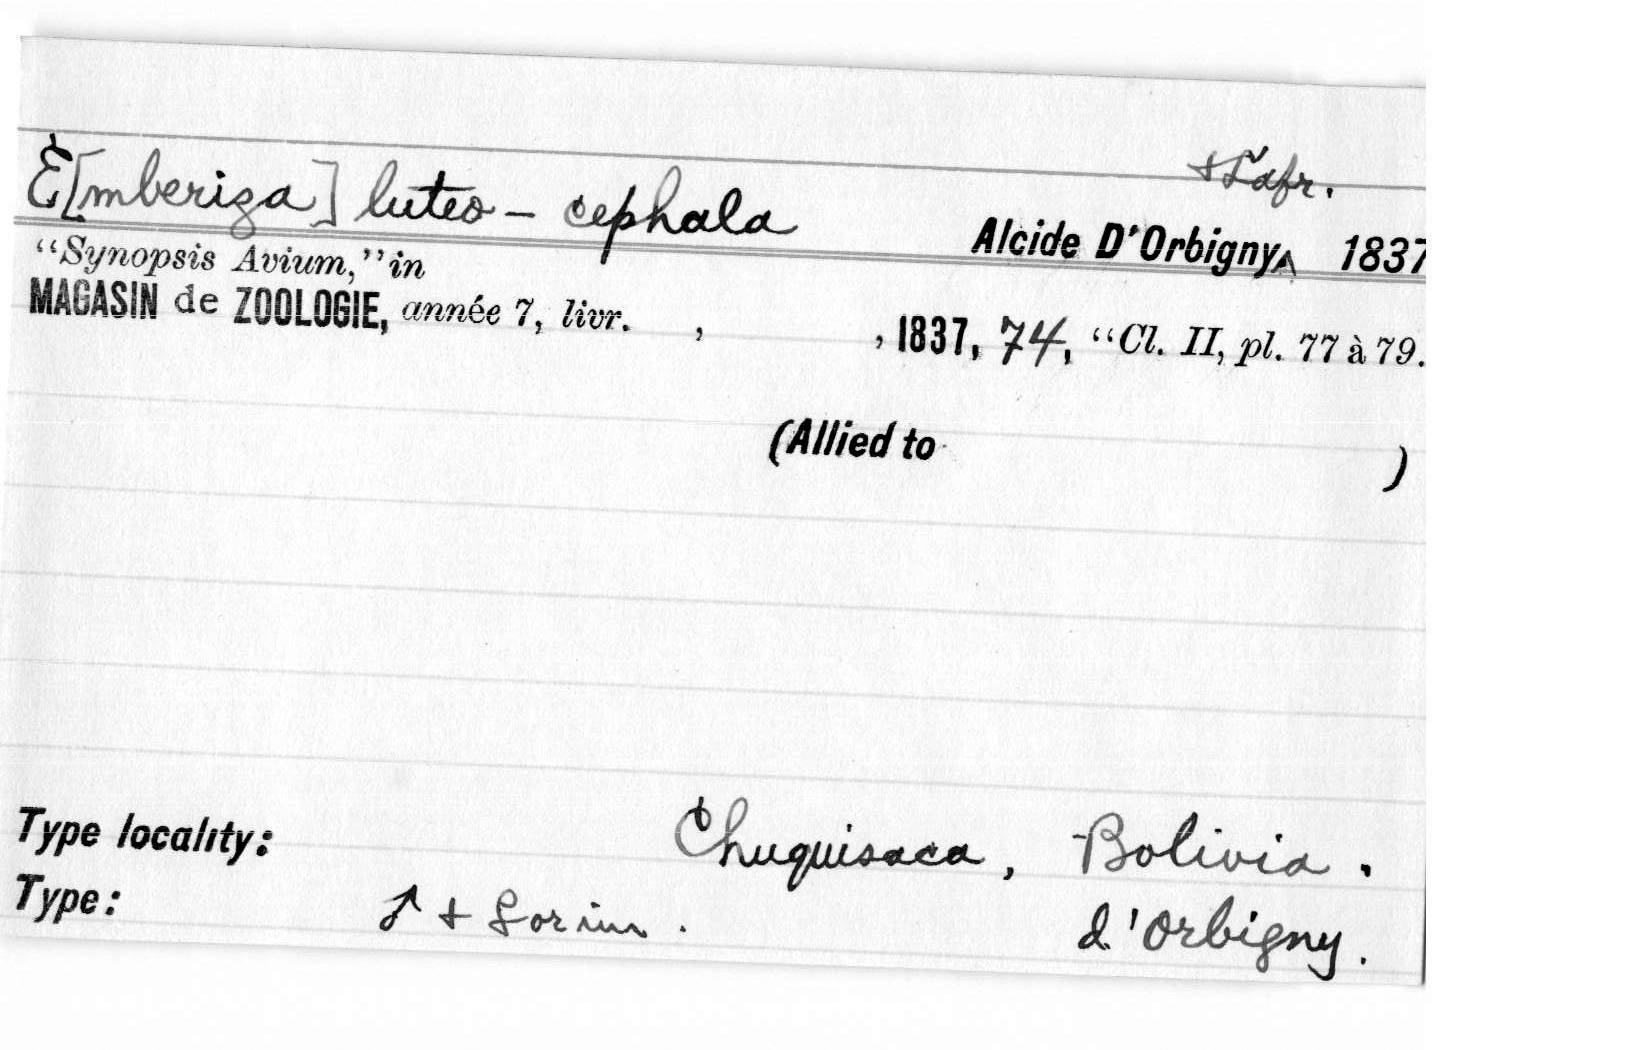 E[mberiza] luteo-cephala
+ Lafr.
Alcide D'Orbigny^ 1837
“Synopsis Avium,” in
MAGASIN de ZOOLOGIE, année 7, livr. , , 1837, 74, “Cl. II, pl. 77 à 79.
(Allied to )
Type locality: Chuquisaca, Bolivia.
Type: ♂ + . d'Orbigny.